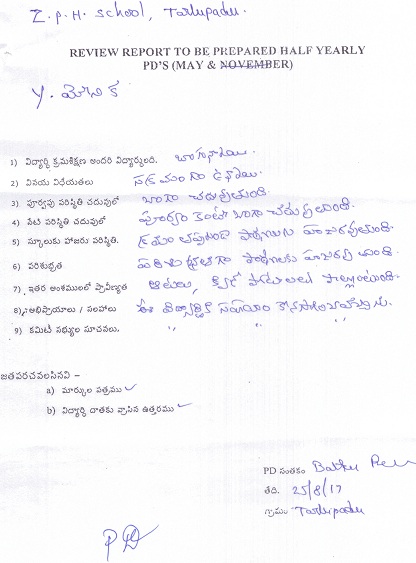 Z.P.H. School, Tarlupadu.
REVIEW REPORT TO BE PREPARED HALF YEARLY
PD'S (MAY & NOVEMBER)
Y. మోనిక
1) విద్యార్థి క్రమశిక్షణ అందరి విద్యార్థులది. బాగున్నాయి.
2) వినయ విధేయతలు సక్రమంగా ఉన్నాయి.
3) పూర్వపు పరిస్థితి చదువులో బాగా చదువుచుంది.
4) నేటి పరిస్థితి చదువులో పూర్వం కంటే బాగా చదువుచుంది.
5) స్కూలుకు హాజరు పరిస్థితి. క్రమం తప్పకుండా హాజరవుచుంది.
6) పరిశుభ్రత పరిశుభ్రతగా హాజరవుచుంది.
7) ఇతర అంశములలో ప్రావీణ్యత ఆటలు, క్విజ్ పాల్గొంటుంది.
8) అభిప్రాయాలు / సలహాలు ఈ విద్యార్థికి సహాయం
9) కమిటీ సభ్యుల సూచనలు. " "
జతపరచవలసినవి –
a) మార్కుల పత్రము ✓
b) విద్యార్థి దాతకు వ్రాసిన ఉత్తరము ✓
PD సంతకం
తేది. 25/8/17
గ్రామం Tarlupadu
PD